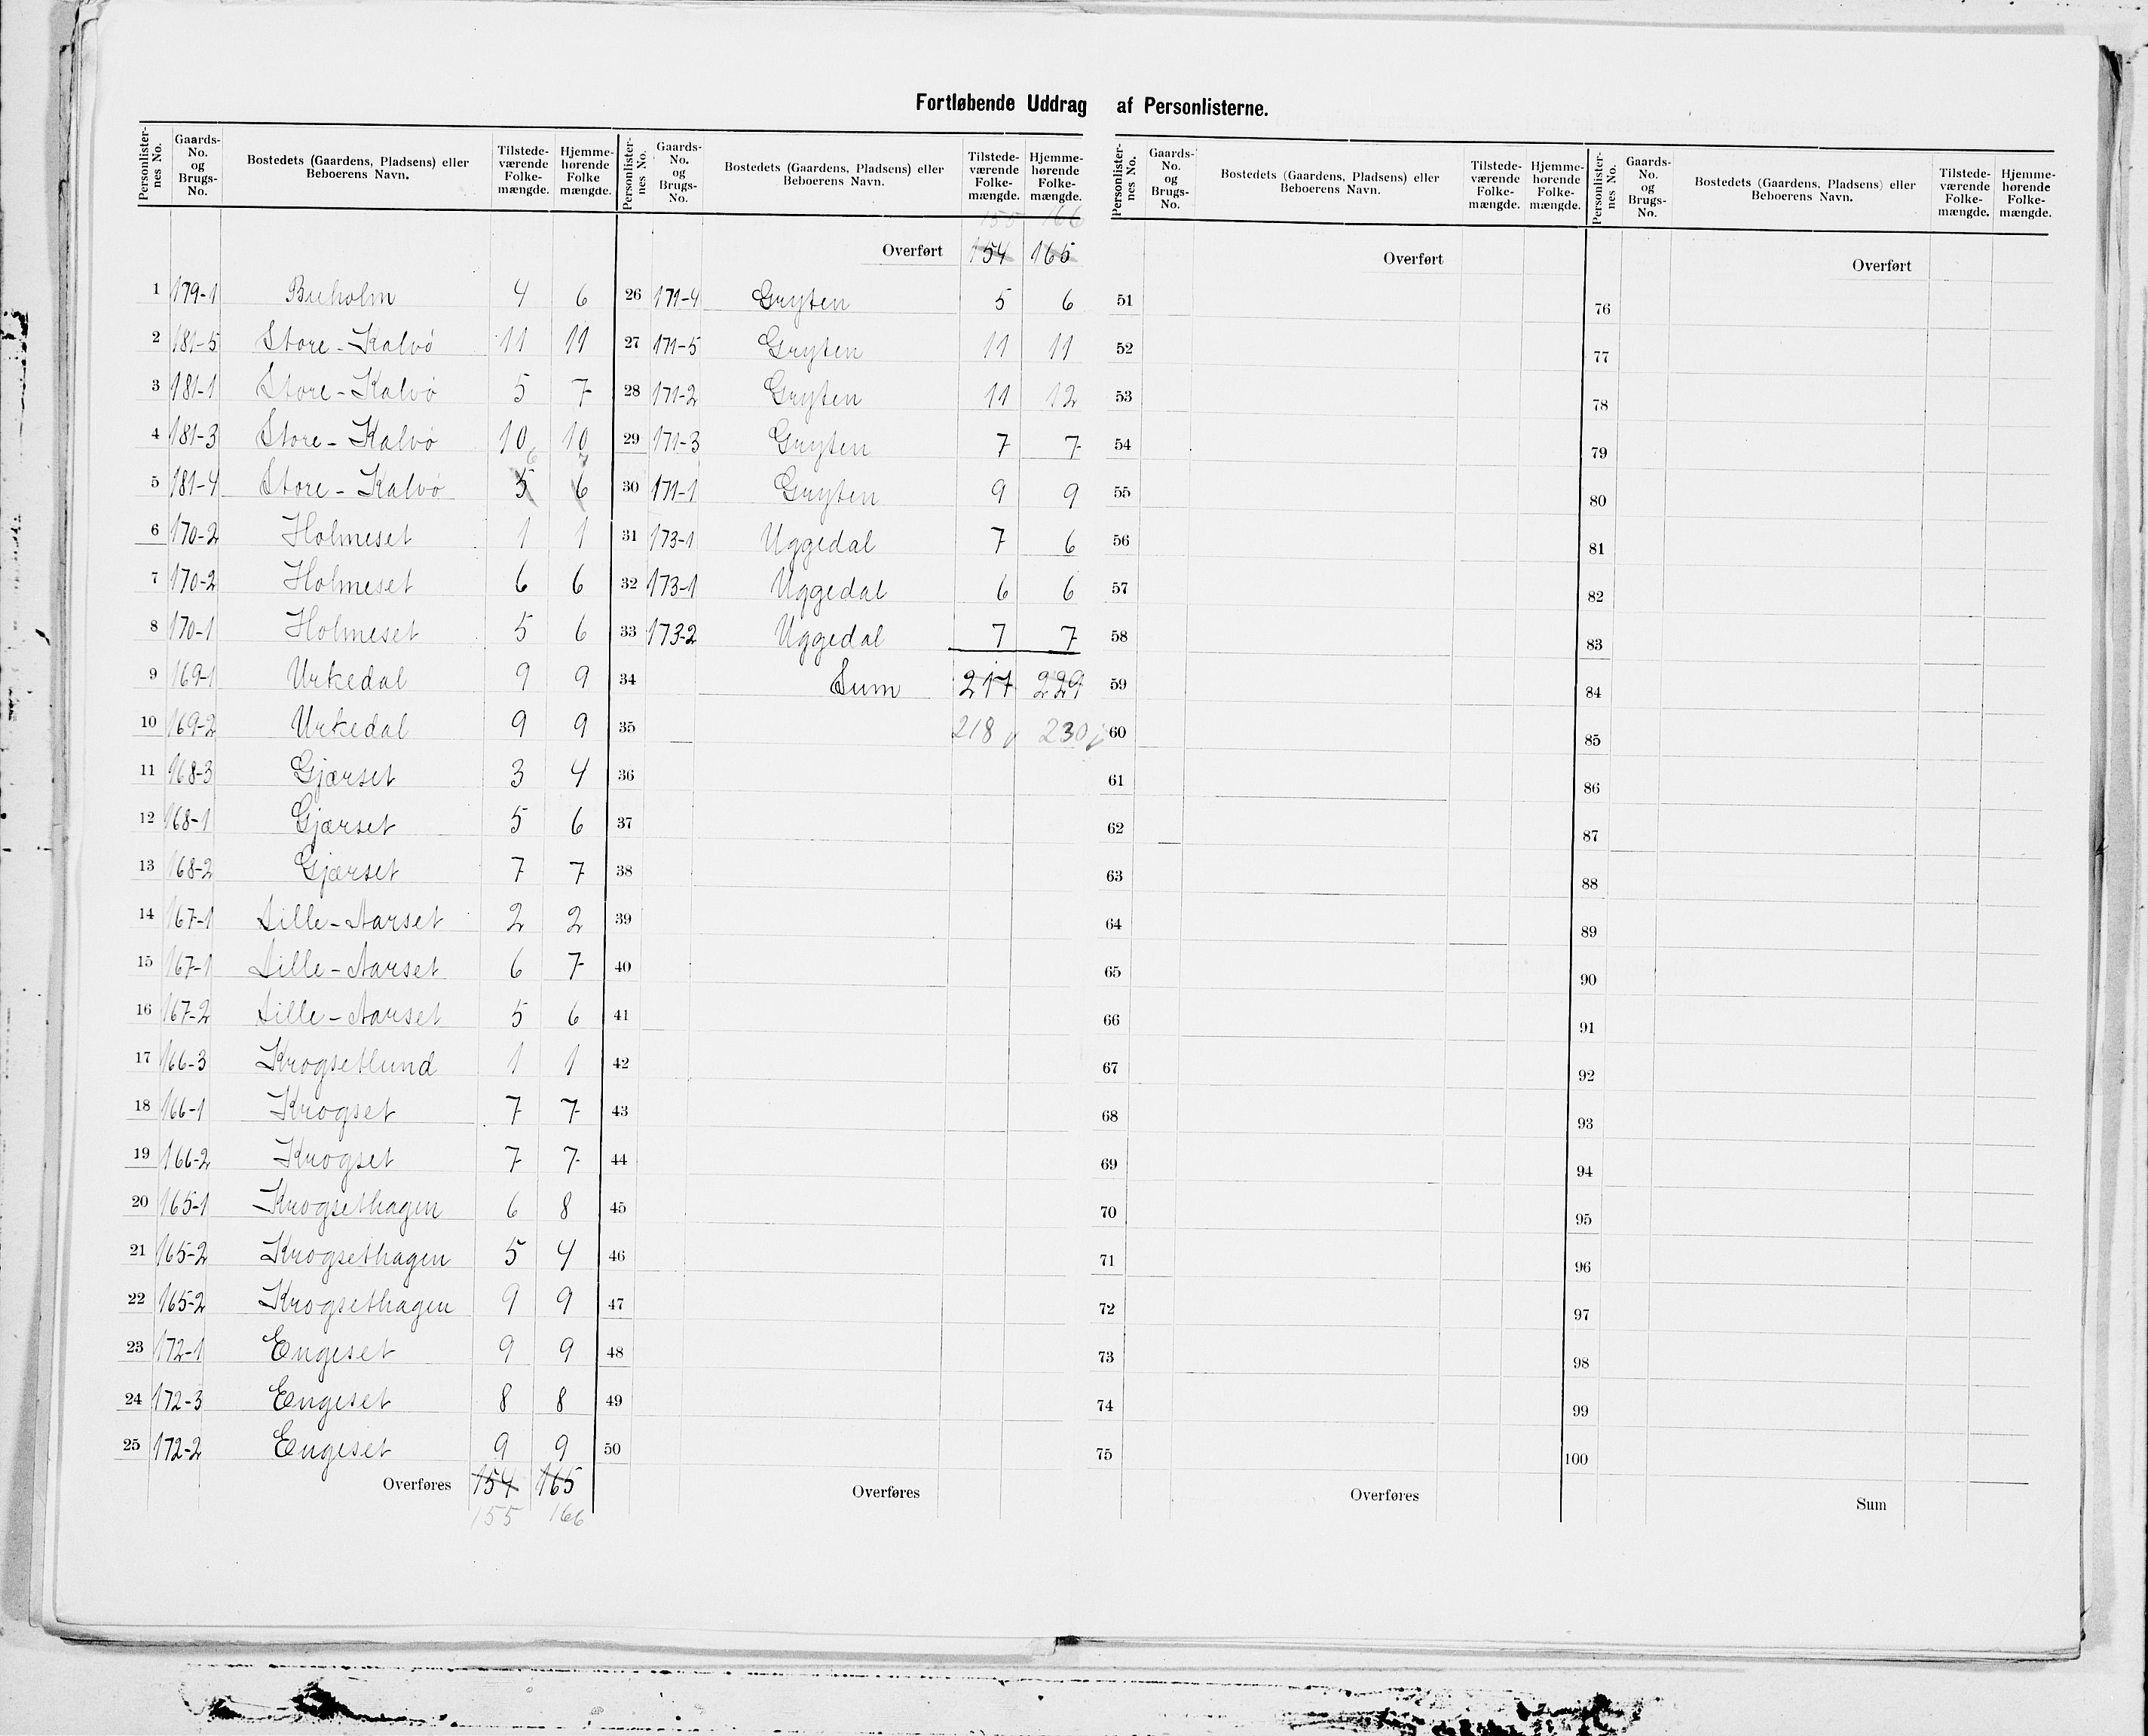 Fortløbende Uddrag af Personlisterne.
Personlister-nes No. Gaards-No. og Brugs-No. Bostedets (Gaardens, Pladsens) eller Beboerens Navn. Tilstede-værende Folke-mængde. Hjemme-hørende Folke mængde.
Personlister-nes No. Gaards-No. og Brugs-No. Bostedets (Gaardens, Pladsens) eller Beboerens Navn. Tilstede-værende Folke-mængde. Hjemme-hørende Folke-mængde.
Personlister-nes No. Gaards-No. og Brugs-No. Bostedets (Gaardens, Pladsens) eller Beboerens Navn. Tilstede-værende Folke-mængde. Hjemme-hørende Folke-mængde.
Personlister-nes No. Gaards-No. og Brugs-No. Bostedets (Gaardens, Pladsens) eller Beboerens Navn. Tilstede-værende Folke-mængde. Hjemme-hørende Folke-mængde.
1 179-1 Bueholm 4 6
2 181-5 Store-Kalvø 11 11
3 181-1 Store-Kalvø 5 7
4 181-3 Store-Kalvø 10 10
6 7
5 181-4 Store-Kalvø 5 6
6 170-2 Holmeset 1 1
7 170-2 Holmeset 6 6
8 170-1 Holmeset 5 6
9 169-1 Urkedal 9 9
10 169-2 Urkedal 9 9
11 168-3 Gjærset 3 4
12 168-1 Gjærset 5 6
13 168-2 Gjærset 7 7
14 167-1 Lille-Aarset 2 2
15 167-1 Lille-Aarset 6 7
16 167-2 Lille-Aarset 5 6
17 166-3 Krogsetlund 1 1
18 166-1 Krogset 7 7
19 166-2 Krogset 7 7
20 165-1 Krogsethagen 6 8
21 165-2 Krogsethagen 5 4
22 165-2 Krogsethagen 9 9
23 172-1 Engeset 9 9
24 172-3 Engeset 8 8
25 172-2 Engeset 9 9
Overføres 154 165
155 166
155 166
Overført 154 165
26 171-4 Gryten 5 6
27 171-5 Gryten 11 11
28 171-2 Gryten 11 12
29 171-3 Gryten 7 7
30 171-1 Gryten 9 9
31 173-1 Uggedal 7 6
32 173-1 Uggedal 6 6
33 173-2 Uggedal 7 7
34 Sum 217 229
35 218 230
36
37
38
39
40
41
42
43
44
45
46
47
48
49
50
Overføres
Overført
51
52
53
54
55
56
57
58
59
60
61
62
63
64
65
66
67
68
69
70
71
72
73
74
75
Overføres
Overført
76
77
78
79
80
81
82
83
84
85
86
87
88
89
90
91
92
93
94
95
96
97
98
99
100
Sum